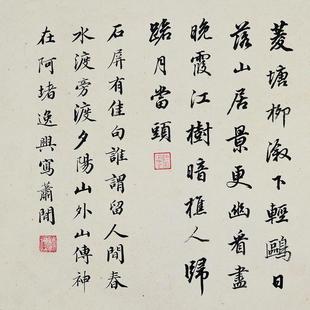 菱塘柳溆下輕鷗日
落山居景更幽看盡
晚霞江樹暗樵人歸
踏月當頭
石屏有佳句誰謂留人間春
水渡旁渡夕陽山外山傳神
在阿堵逸興寫蕭閒